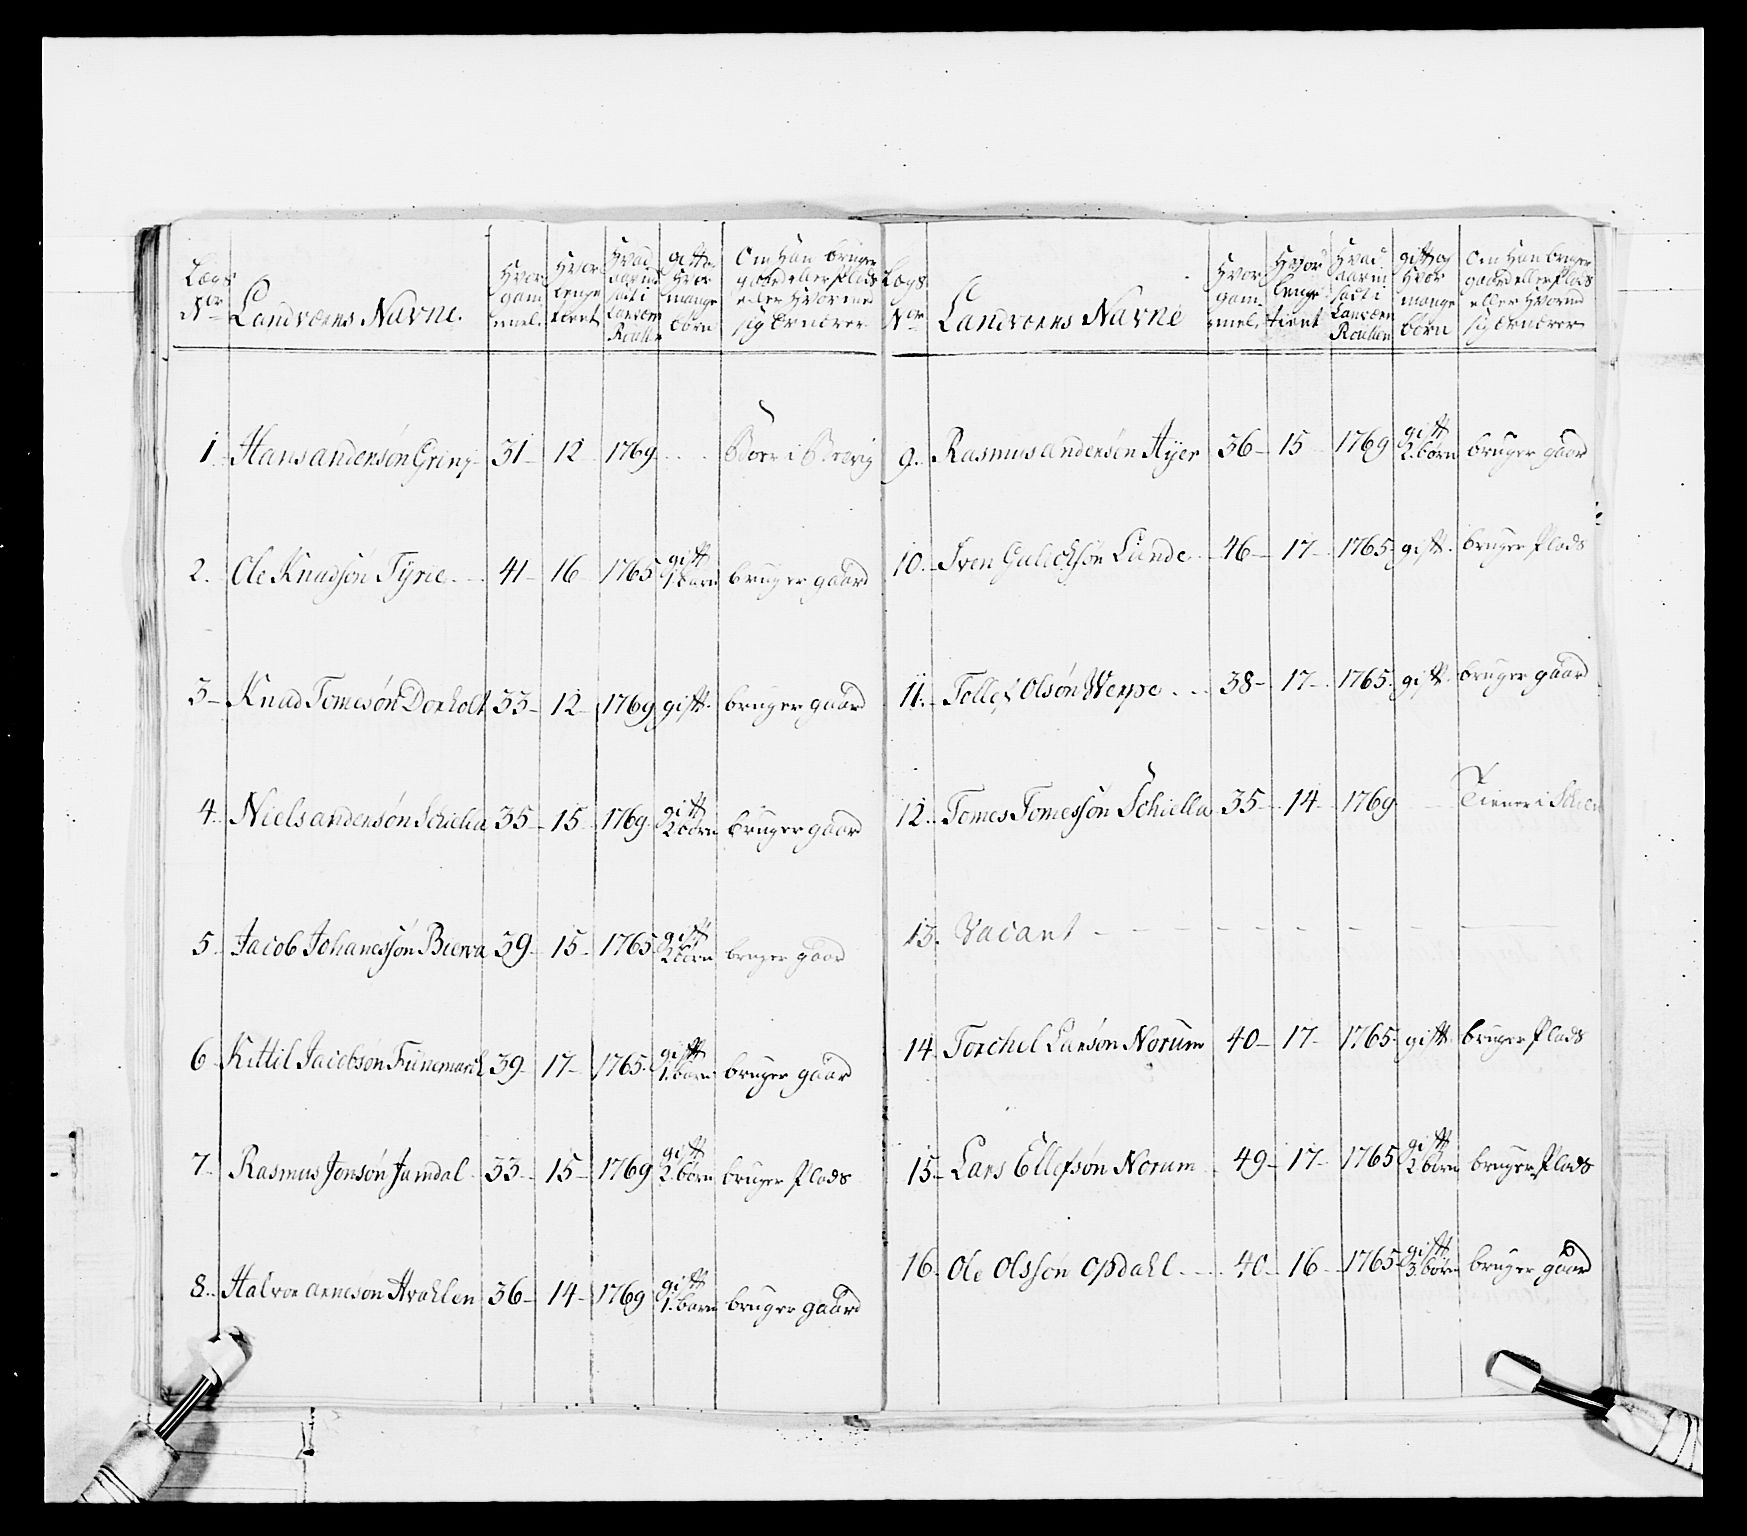 Lægs Nor | Landværns Navne. | Hvor gam̄mel. | Hvor lenge tient | Hvad aar ind sadt i Landværn Roullen | gift og Hvor mange børn | Om Han bruger gaard eller Plads eller Hvormed sig Ernærer
1. Hans andersøn Gring 31 12 1769 Boer i Brevig
2. Ole Knudsøn Tÿrie 41 16 1765 gift 1 barn bruger gaard
3 Knud Tomesøn Dorholt 33 12 1769 gift bruger gaard
4. Niels andersøn Schiella 35 15 1769 gift 2 børn bruger gaard
5. Jacob Johanesføn Bierva 39 15 1765 gift 2 børn bruger gaard
6 Kittil Jacobsøn Finnemarck 39 17 1765 gift 1. barn bruger gaard
7. Rasmus Jonsøn Jamdal 33 15 1769 gift 2. børn bruger Plads
8. Halvor arnesøn Avahlen 36 14 1769 gift 1. barn bruger gaard
Lægs Nor | Landværns Navne | Hvor gam̄mel. | Hvor lenge tient | Hvad aar in sadt i Landværn Roullen | gift og Hvor mange børn | Om Han bruger gaard eller Plads eller Hvormed sig Ernærer
9. Rasmus andersøn Aÿer 36 15 1769 gift 2. børn bruger gaard
10. Sven Gulichsøn Lunde 46 17 1765 gift. bruger Plads
11. Tollef Olsøn Weppe 38 17 1765. gift. bruger gaard
12. Tomes Tomessøn Schiella 35 14 1769 Tiener i Schien
13. Vacant
14. Torchel Larsøn Norum 40 17 1765 gift. bruger Plads
15 Lars Ellefsøn Norum 49 17 1765 gift 2 børn bruger Plads
16. Ole Olssøn Opdahl 40 16 1765 gift 3. børn bruger gaard